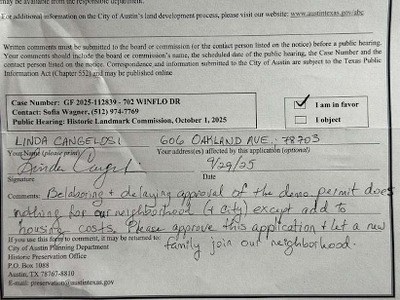 may be available from the responsible department.
For additional information on the City of Austin's land development process, please visit our website: www.austintexas.gov/abc
Written comments must be submitted to the board or commission (or the contact person listed on the notice) before a public hearing.
Your comments should include the board or commission's name, the scheduled date of the public hearing, the Case Number and the
contact person listed on the notice. Correspondence and information submitted to the City of Austin are subject to the Texas Public
Information Act (Chapter 552) and may be published online
Case Number: GF 2025-112839 - 702 WINFLO DR
Contact: Sofia Wagner, (512) 974-7769
Public Hearing: Historic Landmark Commission, October 1, 2025
✓ I am in favor
I object
LINDA CANGELOSI 606 OAKLAND AVE.; 78703
Your Name (please print) Your address(es) affected by this application (optional)
Linda Cangelosi 9/29/25
Signature Date
Comments: Belaboring + delaying approval of the demo permit does
nothing for our neighborhood (+ City) except add to
housing costs. Please approve this application + let a new
family join our neighborhood.
If you use this form to comment, it may be returned to:
City of Austin Planning Department
Historic Preservation Office
P.O. Box 1088
Austin, TX 78767-8810
E-mail: preservation@austintexas.gov